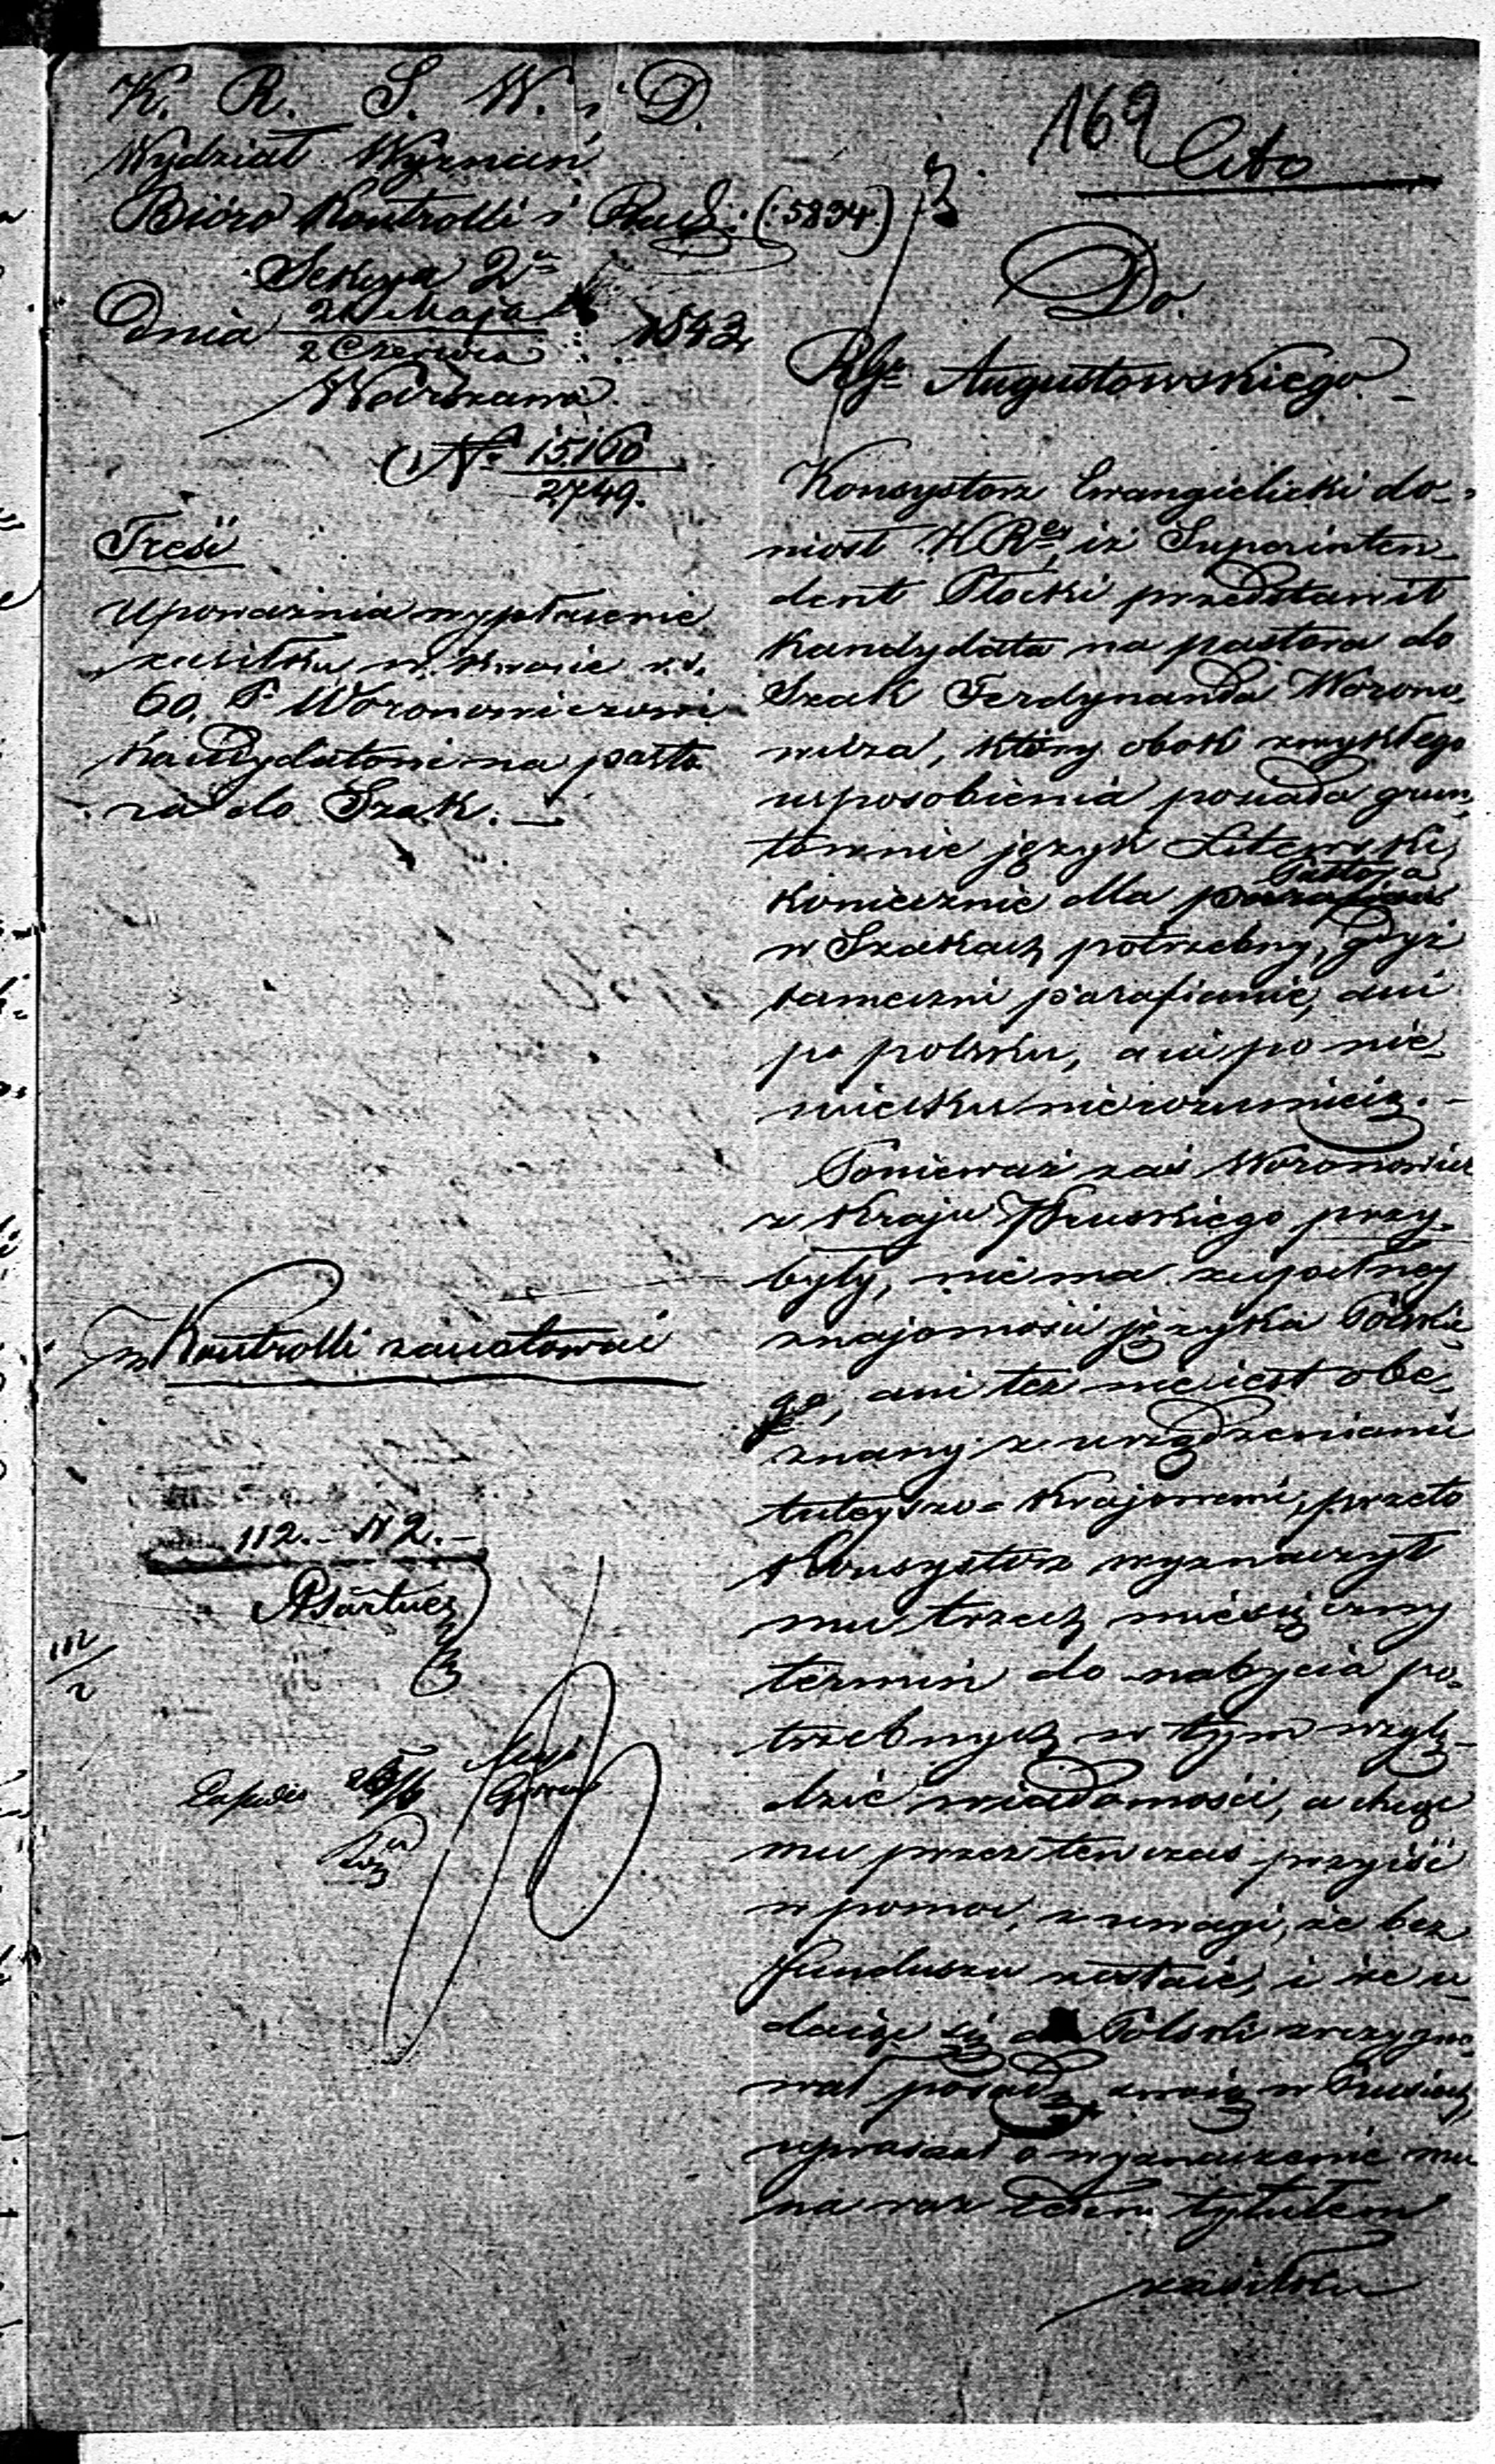 K. R. S. W. i D.
Wydział Wyznań
Bióro Kontrolli i Rach: (:5834:)
Sekcya 2a
Dnia 21 Maja / 2 Czerwca 1843
Warszawa
No 15.160 / 2749.
Treść
Upoważnia wypłacenie
zasiłku w kwocie r.s.
60. P. Woronowiczowi
Kandydatowi na pasto
ra do Szak. —
w Kontrolli zanotować
112. — N 2. —
112 / 2
169
Cito
Do.
RGo Augustowskiego
Konsystorz Ewangielicki do-
niosł KRey, iż Superinten-
dent Płocki przedstawił
Kandydata na pastora do
Szak Ferdynanda Worono-
wicza, który obok zwykłego
usposobienia posiada grun-
townie język Litewski,
koniecznie dla Pastora
w Szakach potrzebny, gdyż
tameczni parafianie, ani
po polsku, ani po nie-
miecku nie rozumieią. —
Ponieważ zaś Woronowicz
z Kraju Pruskiego przy-
były, nie ma zupełney
znajomości języka Polskie-
go, ani też nie iest obe-
znany z urządzeniami
tuteyszo-krajowemi, przeto
Konsystorz wyznaczył
mu trzech miesięczny
termin do nabycia po-
trzebnych w tym wzglę-
dzie wiadomości, a chcąc
mu przez ten czas przyiść
w pomoc, z uwagi, że bez
funduszu zostaie, i że u-
daiąc się do Polski zrezygno-
wał posadę swoią w Prusiech,
upraszał o wyznaczenie mu
na raz ieden tytułem
zasiłku